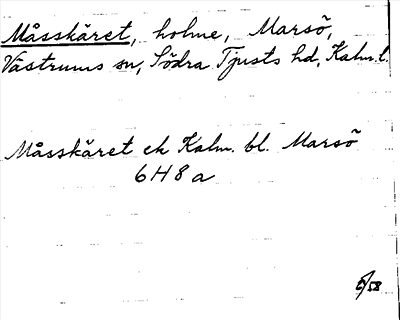 Måsskäret, holme, Marsö,
Västrums sn, Södra Tjusts hd, Kalm. l.
Måsskäret ek Kalm. bl. Marsö
6H8a